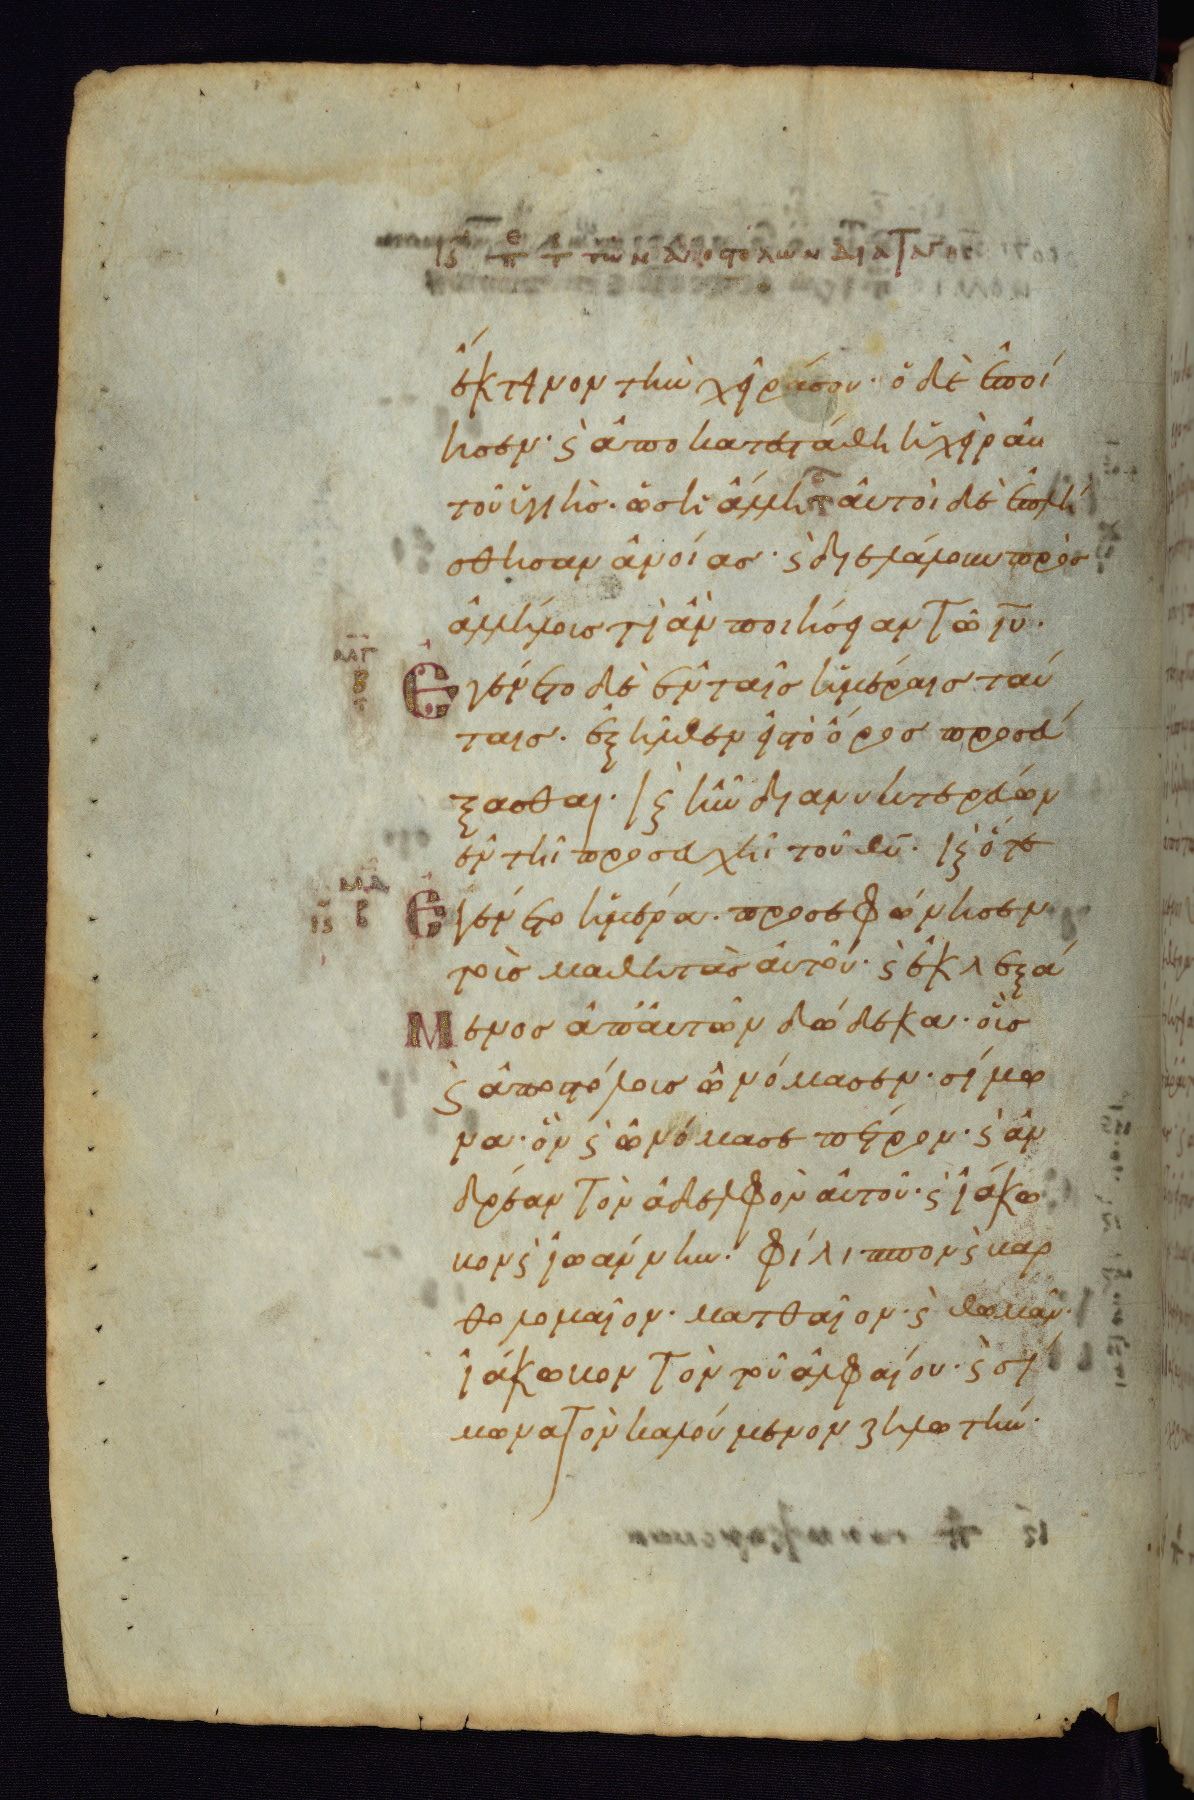 ις περὶ τ τῶν ἀποστόλων διαταγῆς
ἔκτεινον τὴν χεῖρά σου· ὁ δὲ ἐποί
ησεν· ϗ ἀποκατεστάθη ἡ χεὶρ αὐ
τοῦ ὑγιὴς· ὡς ἡ ἄλλη αὐτοὶ δὲ ἐπλή
σθησαν ἀνοίας· ϗ διελάλουν πρὸς
ἀλλήλους τί ἂν ποιήσειαν τῶ ιυ·
λλγ
β
Εγένετο δὲ ἐν ταῖς ἡμέραις ταύ
ταις· ἐξῆλθεν εἰς τὸ ὄρος προσεύ
ξασθαι· ϗ ἦν διανυκτερεύων
ἐν τῆ προσευχῆ τοῦ θυ· ϗ ὅτε
λλδ
ις β
Εγένετο ἡμέρα· προσεφώνησεν
τοὺς μαθητὰς αὐτοῦ· ϗ ἐκλεξά
Μενος ἀπ᾽ αὐτῶν δώδεκα· οὓς
ϗ ἀποστόλους ὠνόμασεν· σίμω
να· ὃν ϗ ὠνόμασε πέτρον· ϗ ἀν
δρέαν τὸν ἀδελφὸν αὐτοῦ· ϗ ἰάκω
βον ϗ ἰωάννην· φίλιππον ϗ βαρ
θολομαῖον· ματθαῖον· ϗ θωμᾶν·
ἰάκωβον τὸν τοῦ ἀλφαίου· ϗ σί
μωνα τὸν καλούμενον ζηλωτήν·